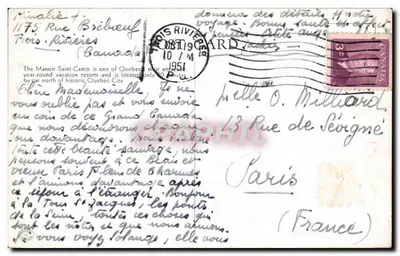 1175 Rue Brébœuf
Trois-Rivières
(Canada)
donnera des détails
voyage. Bonne santé et
TROIS RIVIERES
OCT 19
10 / M
1951
P.Q.
CARD
CANADA
3
The Manoir Saint-Castin is one of Quebec's
year-round vacation resorts and is located only
by car north of historic Quebec City.
Chère Mademoiselle, Je ne
vous oublie pas et vous envoie
un coin de ce Grand Canada
que nous découvrons chaque
jour davantage. Mais
toute cette beauté sauvage, nous
pensons souvent à ce Blais et
vieux Paris plein de charmes
et l'aimons davantage après
ce séjour à l'étranger. Bonjour
à la Tour St Jacques, les ponts
de la Seine, toutes ces choses qui
sont les nôtres et que nous aimons.
Si vous voyez Solange, elle vous
Mlle O. Milliard
43 Rue de Sévigné
Paris
(France)